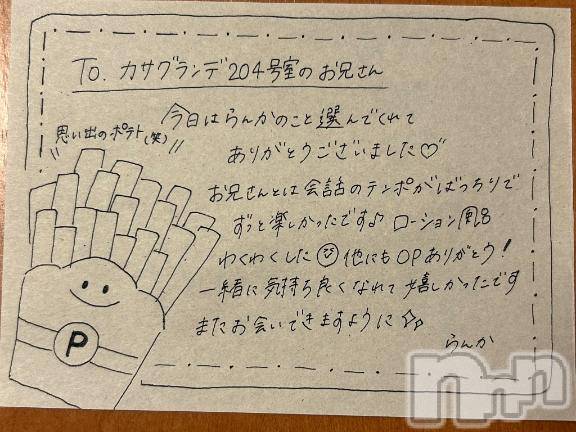 To. カサグランデ204号室のお兄さん
思い出のポテト(笑)
今日はらんかのこと選んでくれて
ありがとうございました♡
お兄さんとは会話のテンポがばっちりで
ずっと楽しかったです♪ ローション風呂
わくわくした 他にもOPありがとう!
一緒に気持ち良くなれて嬉しかったです
またお会いできますように
らんか
P